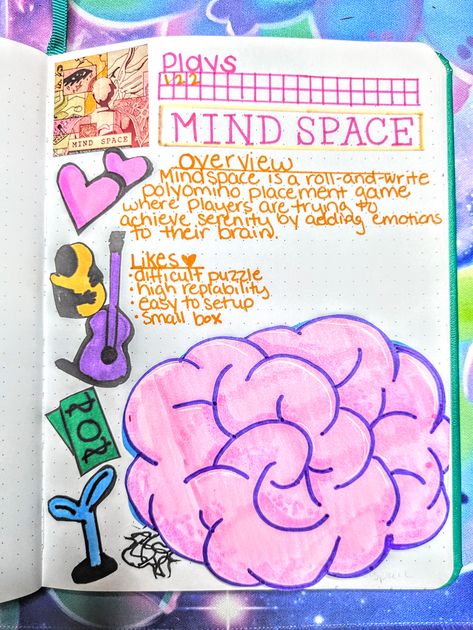 Plays
1 2 2
MIND SPACE
MIND SPACE
Overview
Mindspace is a roll-and-write
polyomino placement game
where players are trying to
achieve serenity by adding emotions
to their brain.
Likes ♥
• difficult puzzle
• high replability
• easy to setup
• small box